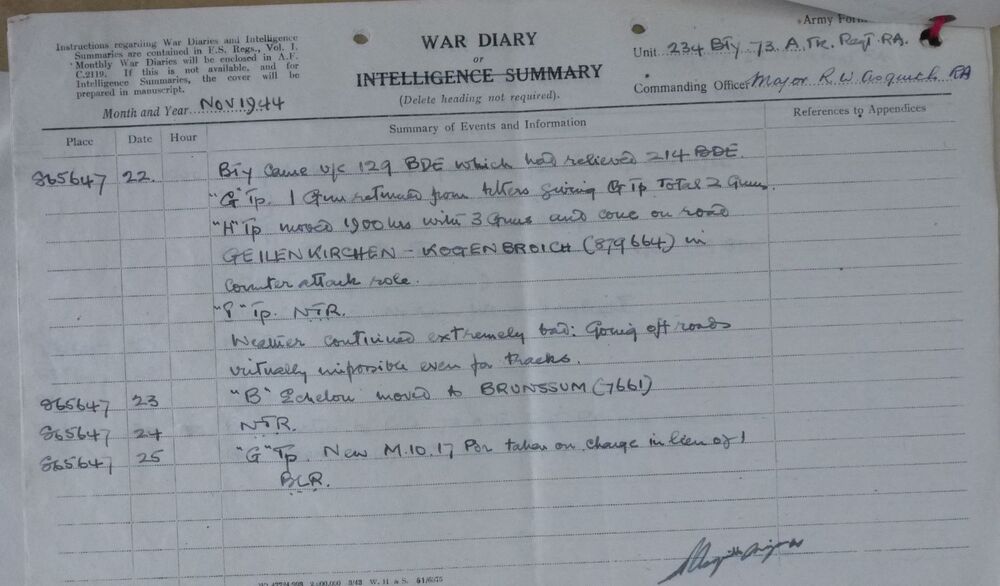 Army Form
Instructions regarding War Diaries and Intelligence
Summaries are contained in F.S. Regs., Vol. I.
Monthly War Diaries will be enclosed in A.F.
C.2119. If this is not available, and for
Intelligence Summaries, the cover will be
prepared in manuscript.
Month and Year NOV 1944
WAR DIARY
or
INTELLIGENCE SUMMARY
(Delete heading not required).
Unit 234 BTY 73 A.TK. Regt. RA.
Commanding Officer Major R W Asquith RA
Place Date Hour Summary of Events and Information References to Appendices
865647 22. BTY came u/c 129 BDE which had relieved 214 BDE.
"G" Tp. 1 Gun returned from giving G Tp Total 2 Guns.
"H" Tp moved 1900 hrs with 3 Guns and cone on road
GEILENKIRCHEN - KOGENBROICH (879664) in
Counter attack role.
Tp. NTR.
Weather continued extremely bad: Going off roads
virtually impossible even for tracks.
865647 23 "B" Echelon moved to BRUNSSUM (7661)
865647 24 NTR.
865647 25 "G" Tp. New M.10. 17 Pdr taken on charge in lieu of 1
BLR.
W. H & S. 51/6375